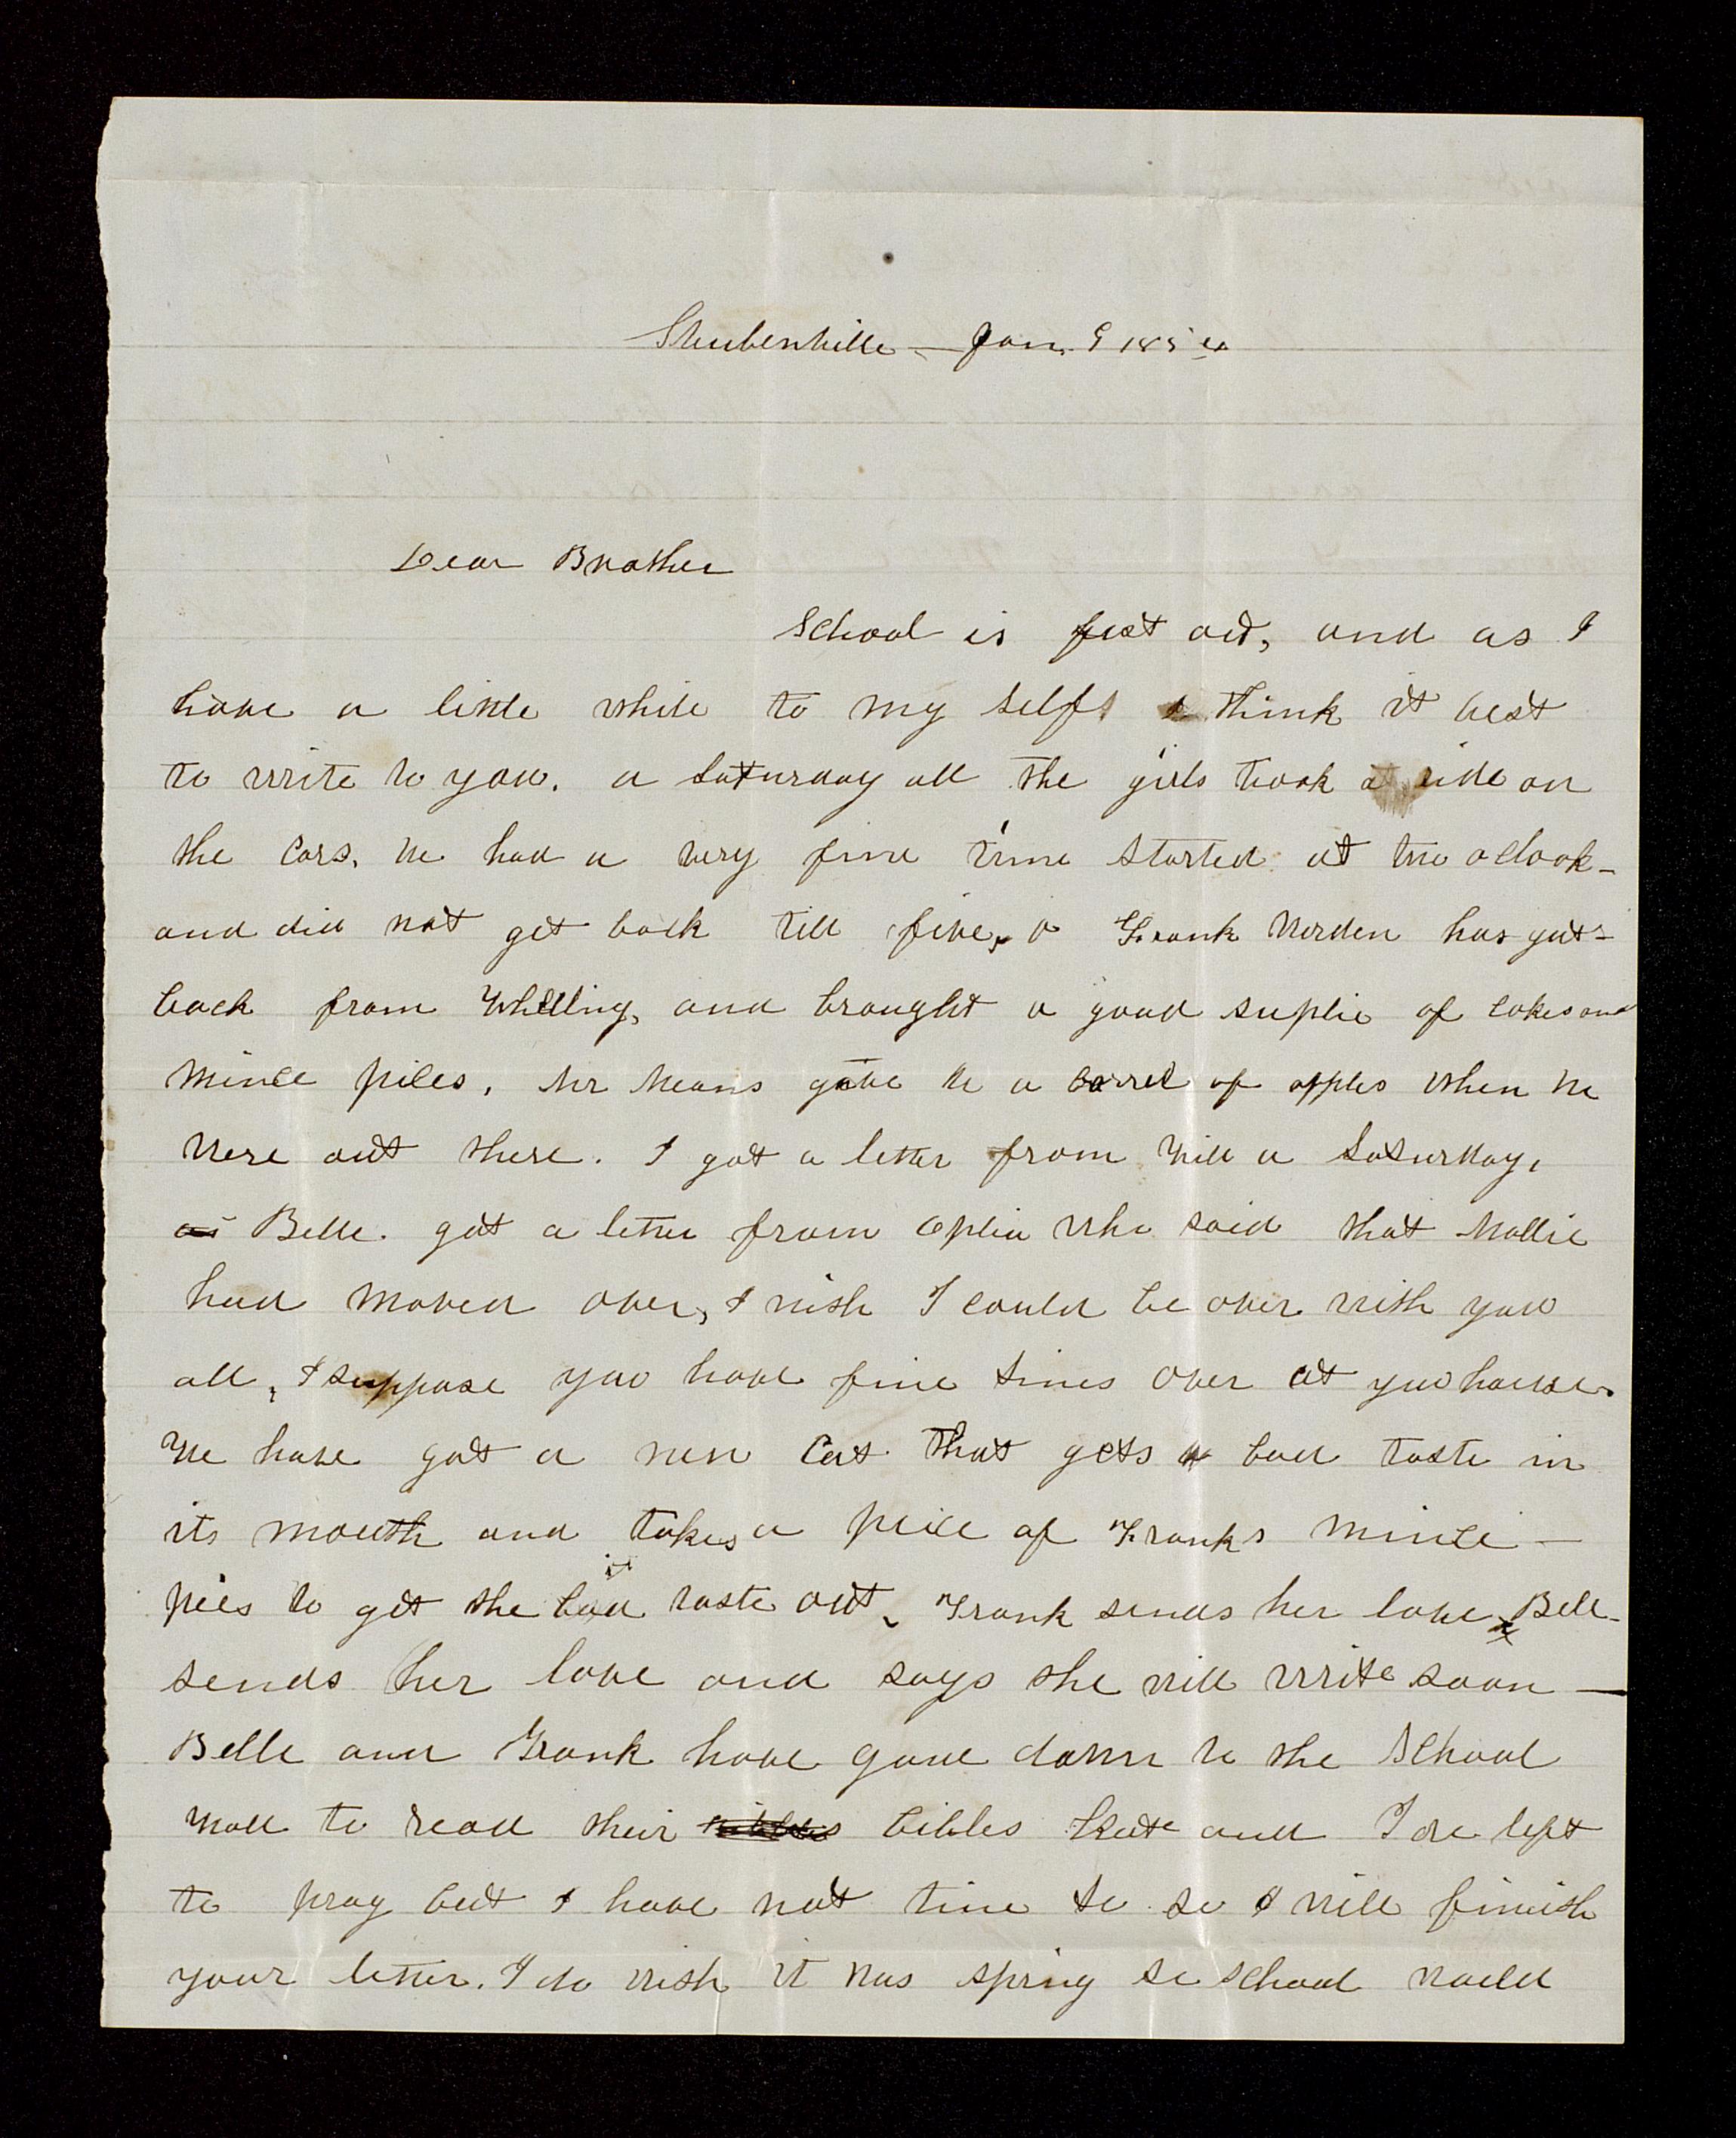 Steubenville — Jan. 9 1854
Dear Brother
School is just out, and as I
have a little while to my self I think it best
to write to you. a Saturday all the girls took a ride on
the cars. We had a very fine time started at two oclook -
and did not get back till five, Frank Worden has got -
back from Whelling, and brought a good suplie of cakes and
mince piles, Mr Means gave We a barrel of apples when we
were out there. I got a letter from Will a Saturday,
Belle got a letter from who said that Mollie
had moved over, I wish I could be over with you
all, I suppose you have fine times over at you house.
We have got a new Cat that gets a bad taste in
its mouth and takes a peice of Franks mince —
pies to get the bad taste out, Frank sends her love, Bell -
sends her love and says she will write soon —
Belle and Frank have gone down to the School
to read their bibles Kate and I are left
to pray but I have not time to so I will finish
your letter. I do wish it was spring so school would